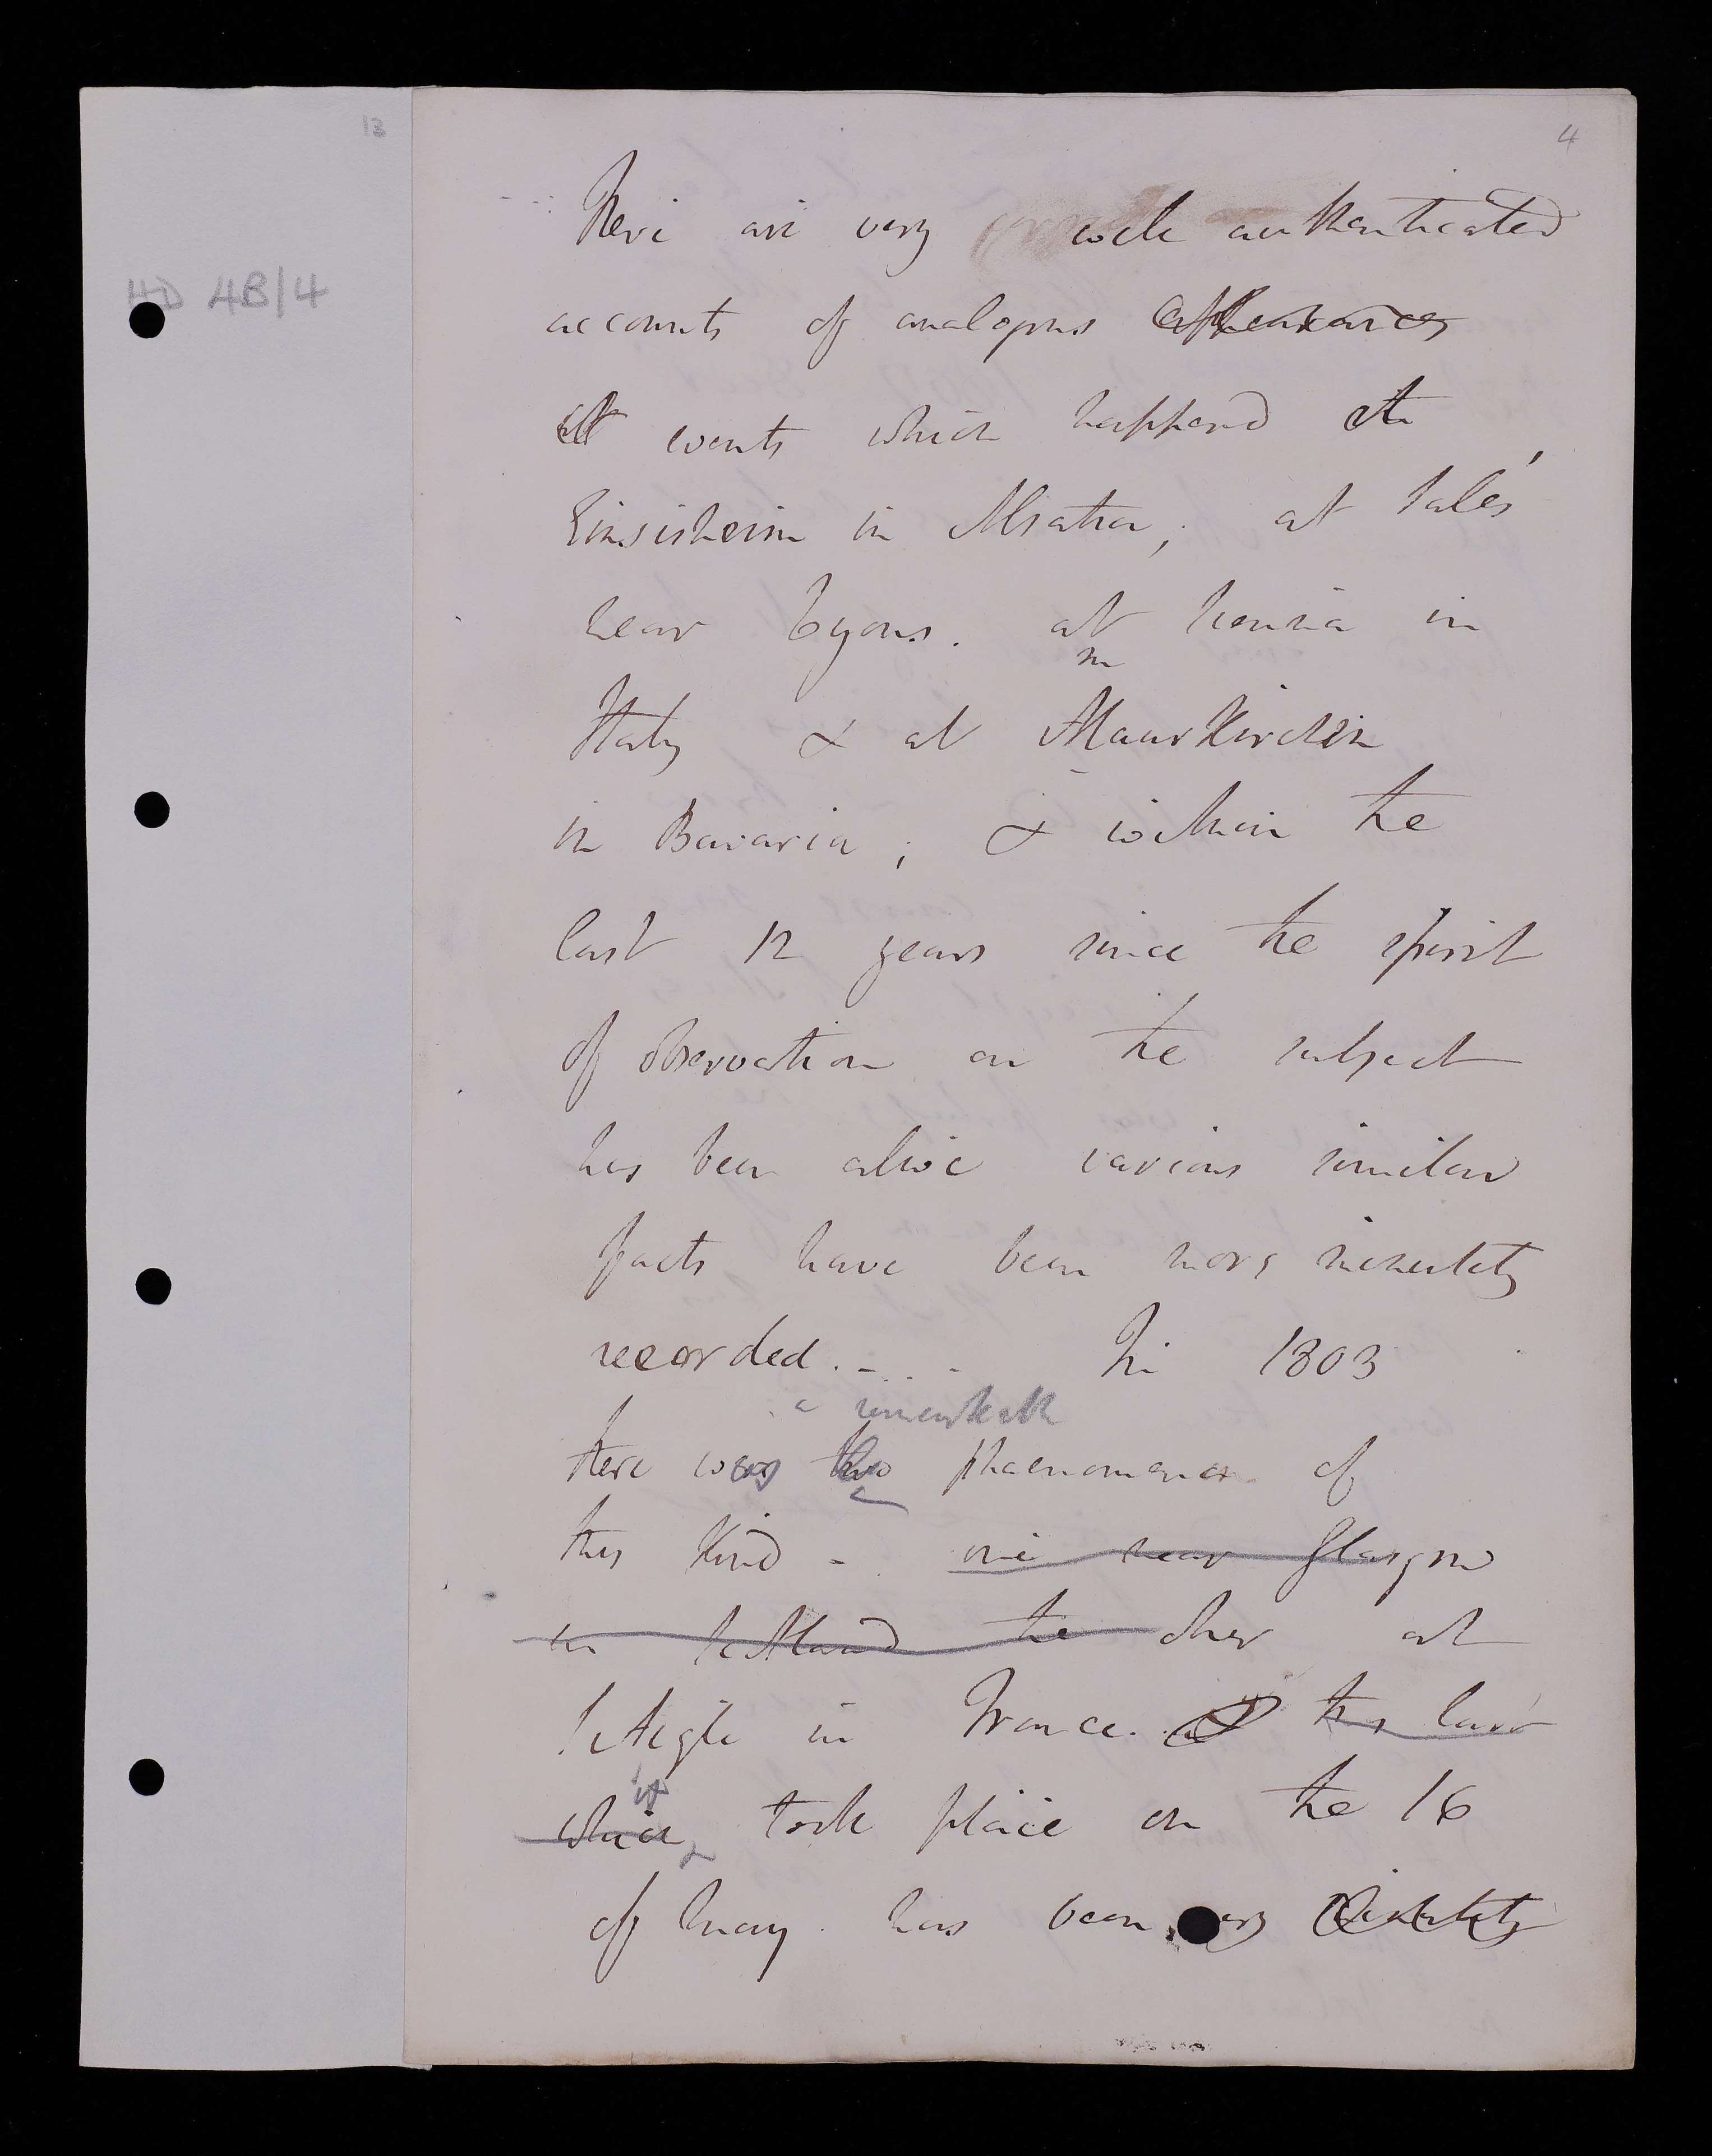 13
4
HD 4B/4
There are very well authenticated
accounts of analogous appearances
at events which happened at
Einsisheim in Alsatia; at Sales,
near Lyons. at Sienna in
m
Italy & at Maurkirchen
in Bavaria; & within the
last 12 years since the spirit
of observation on the subject
has been alive various similar
facts have been more minutely
recorded. - . . - In 1803
a remarkable
there was two phaenomena of
this kind - one near Glasgow
in Scotland the other at
L'Aigle in France. & this last
it
which took place on the 16
of May. has been very minutely